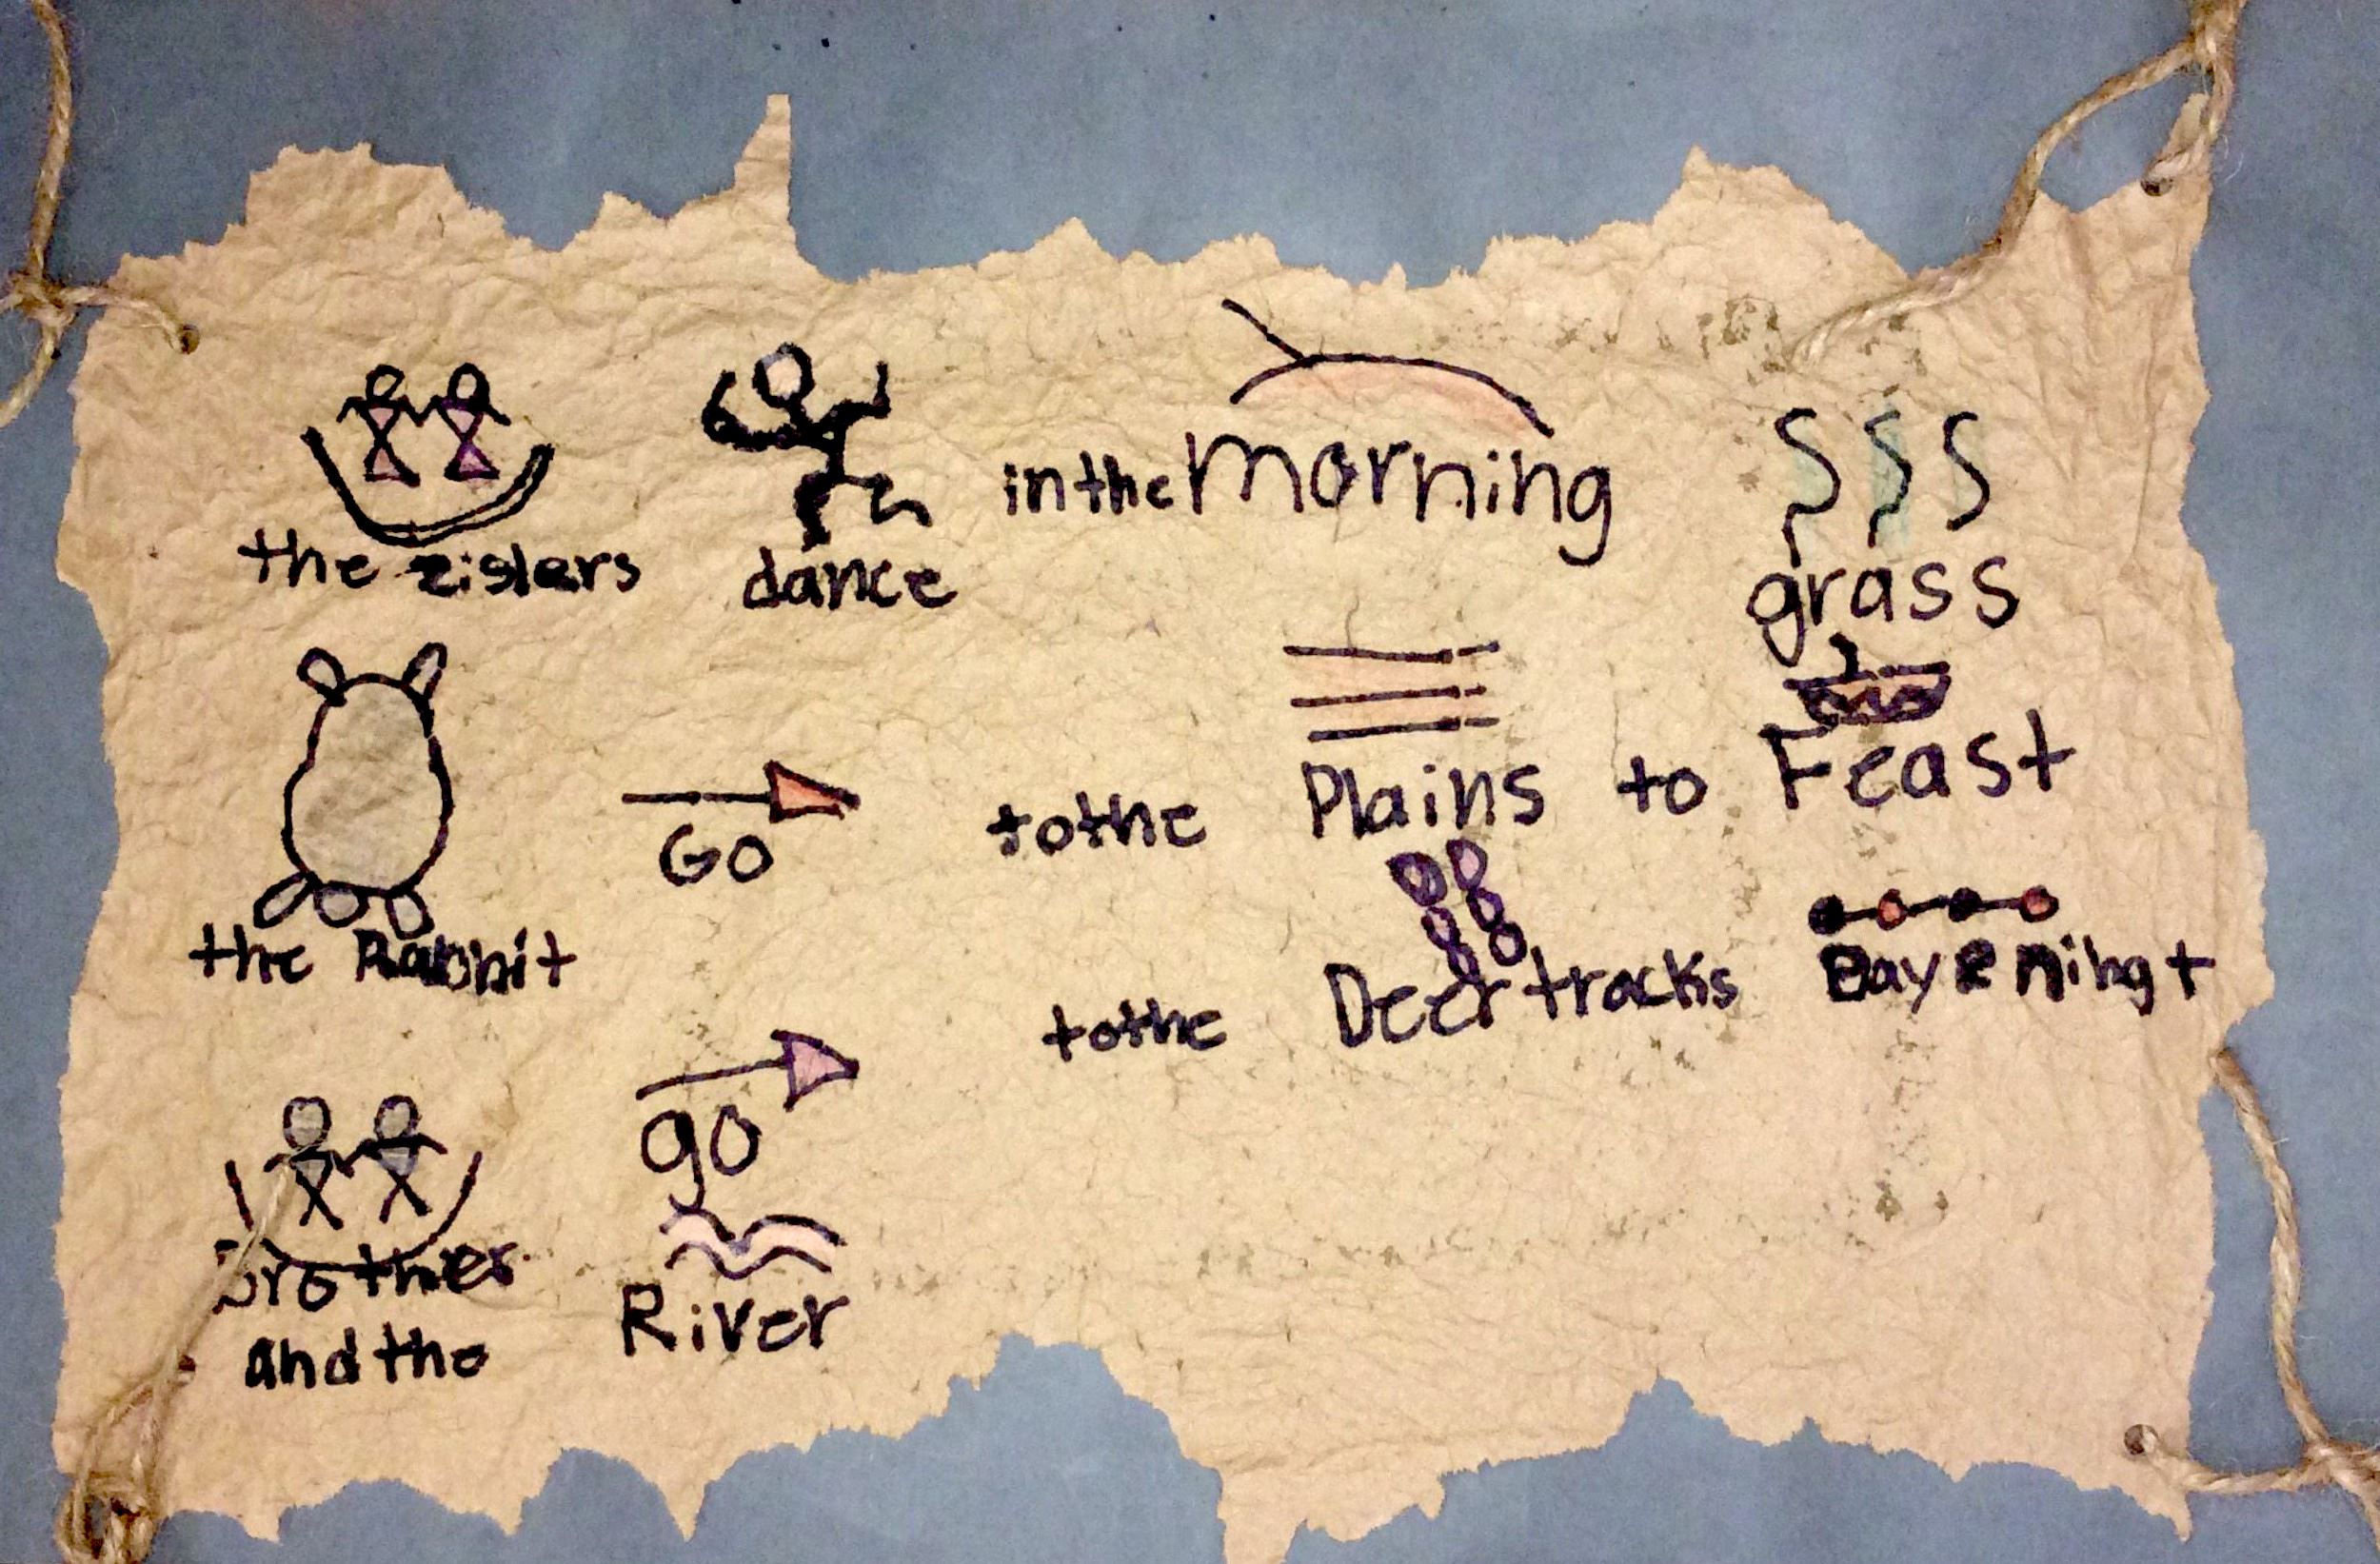 the zisters dance in the morning grass
the Rabbit Go to the Plains to Feast
brothers go to the Deer tracks Day & nihgt
and the River